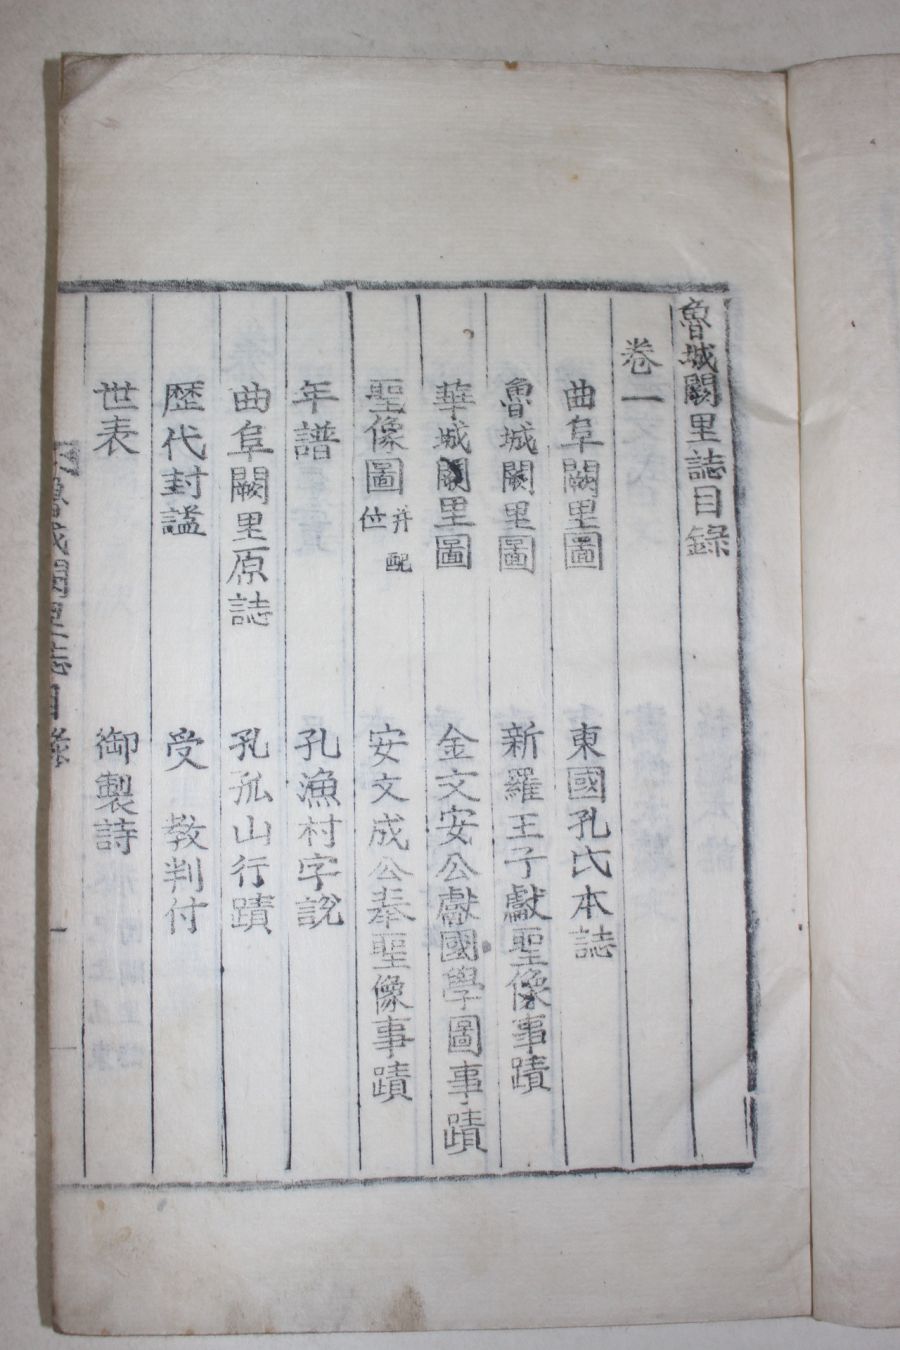 魯城闕里誌目錄
卷一
曲阜闕里圖 東國孔氏本誌
魯城闕里圖 新羅王子獻聖像事蹟
華城闕里圖 金文安公獻國學圖事蹟
聖像圖 并配位 安文成公奉聖像事蹟
年譜 孔漁村字說
曲阜闕里原誌 孔孤山行蹟
歷代封謚 受教判付
世表 御製詩
魯城闕里誌目錄 一